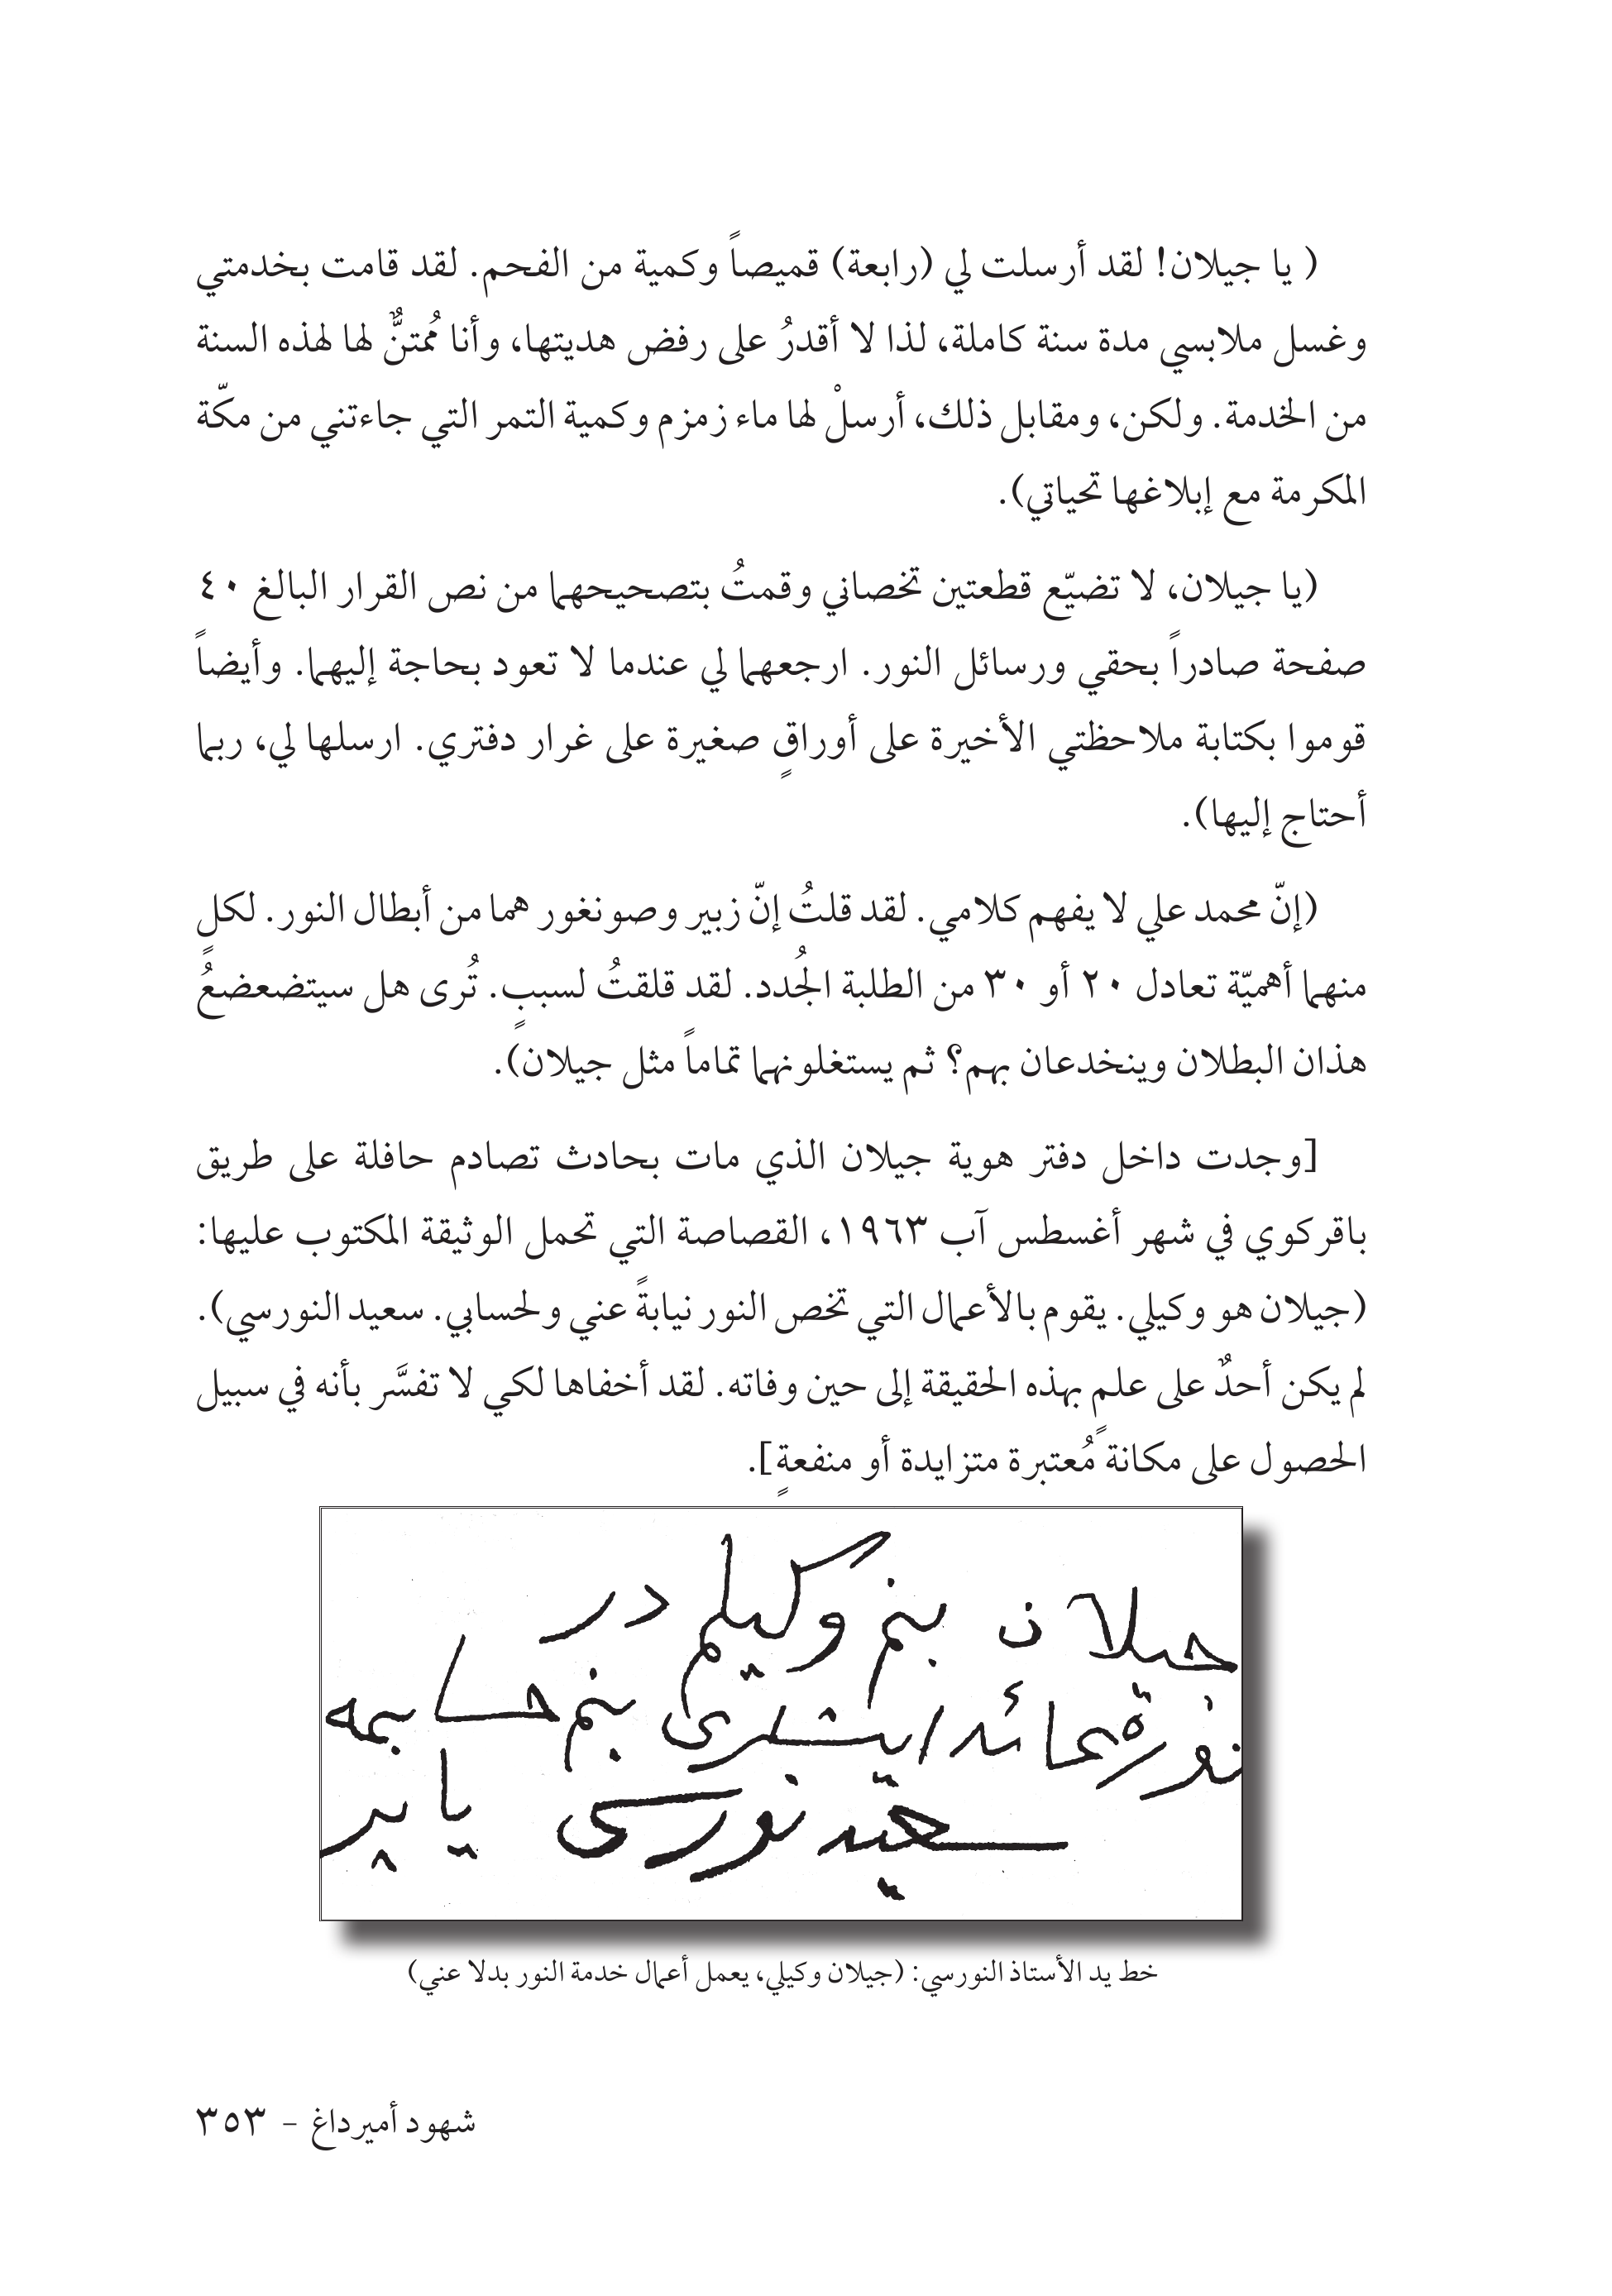 ( يا جيلان! لقد أرسلت لي (رابعة) قميصاً وكمية من الفحم. لقد قامت بخدمتي
وغسل ملابسي مدة سنة كاملة، لذا لا أقدرُ على رفض هديتها، وأنا مُمتنٌّ لها لهذه السنة
من الخدمة. ولكن، ومقابل ذلك، أرسلْ لها ماء زمزم وكمية التمر التي جاءتني من مكّة
المكرمة مع إبلاغها تحياتي).
(يا جيلان، لا تضيّع قطعتين تخصاني وقمتُ بتصحيحهما من نص القرار البالغ ٤٠
صفحة صادراً بحقي ورسائل النور. ارجعهما لي عندما لا تعود بحاجة إليهما. وأيضاً
قوموا بكتابة ملاحظتي الأخيرة على أوراقٍ صغيرة على غرار دفتري. ارسلها لي، ربما
أحتاج إليها).
(إنّ محمد علي لا يفهم كلامي. لقد قلتُ إنّ زبير وصونغور هما من أبطال النور. لكلٍ
منهما أهميّة تعادل ٢٠ أو ٣٠ من الطلبة الجُدد. لقد قلقتُ لسببٍ. تُرى هل سيتضعضعُ
هذان البطلان وينخدعان بهم؟ ثم يستغلونهما تماماً مثل جيلان).
[وجدت داخل دفتر هوية جيلان الذي مات بحادث تصادم حافلة على طريق
باقركوي في شهر أغسطس آب ١٩٦٣، القصاصة التي تحمل الوثيقة المكتوب عليها:
(جيلان هو وكيلي. يقوم بالأعمال التي تخص النور نيابةً عني ولحسابي. سعيد النورسي).
لم يكن أحدٌ على علمٍ بهذه الحقيقة إلى حين وفاته. لقد أخفاها لكي لا تفسَّر بأنه في سبيل
الحصول على مكانة مُعتبرة متزايدة أو منفعةٍ].
جيلان بنم وكيلم در
نوره عائد ايشلرى بنم حسابمه
سعيد نورسى ياپر
خط يد الأستاذ النورسي: (جيلان وكيلي، يعمل أعمال خدمة النور بدلا عني)
شهود أميرداغ - ٣٥٣